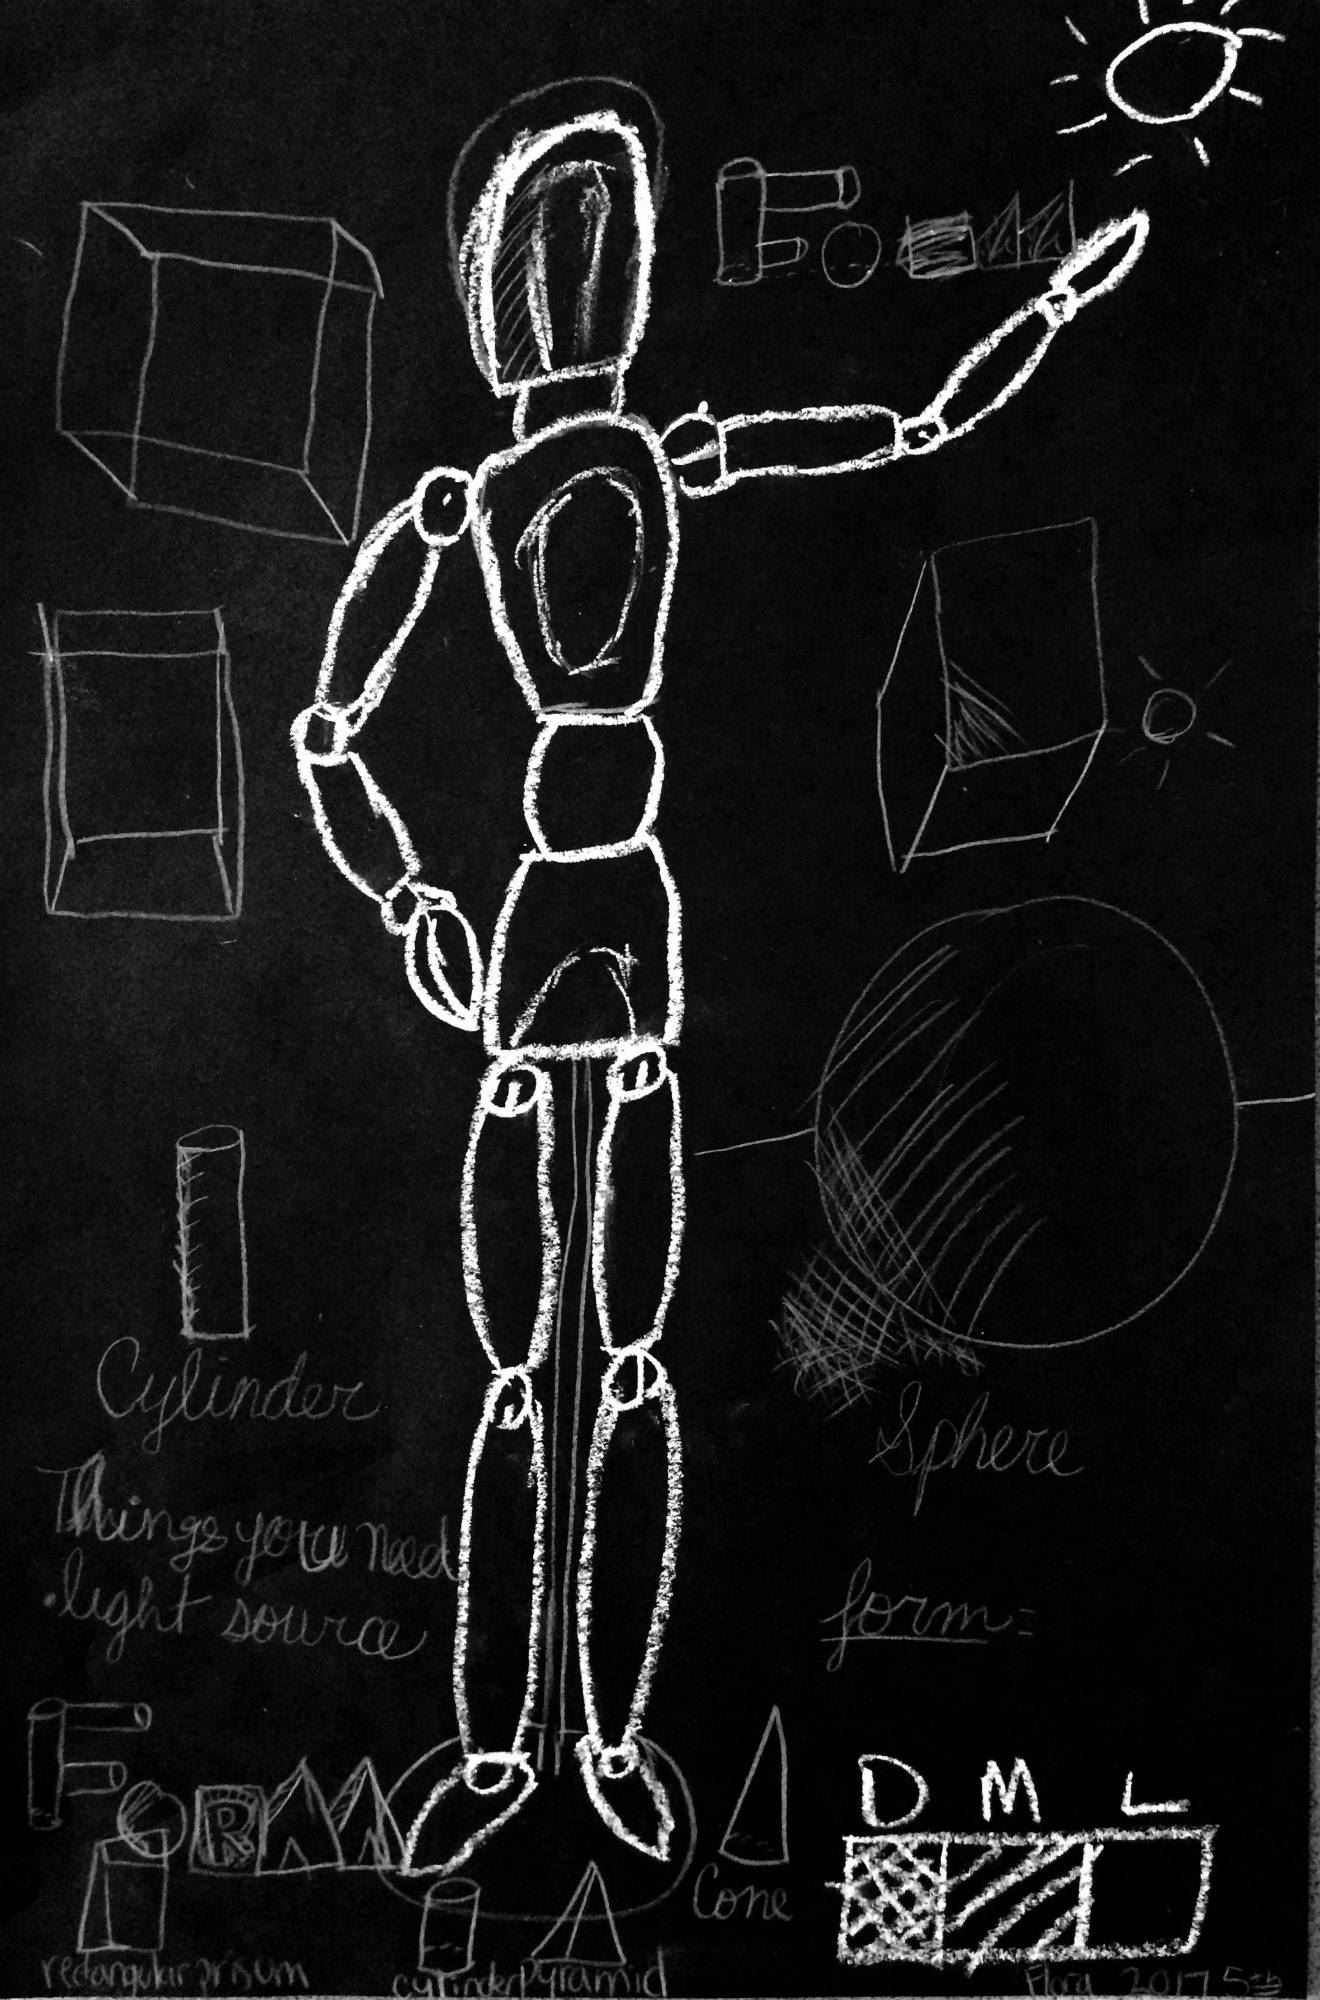 Form
Cylinder
Sphere
Things you need
.light source
form=
FORM
D M L
Cone
rectangular prisum
cylinder pyramid
Flora 2017 5th